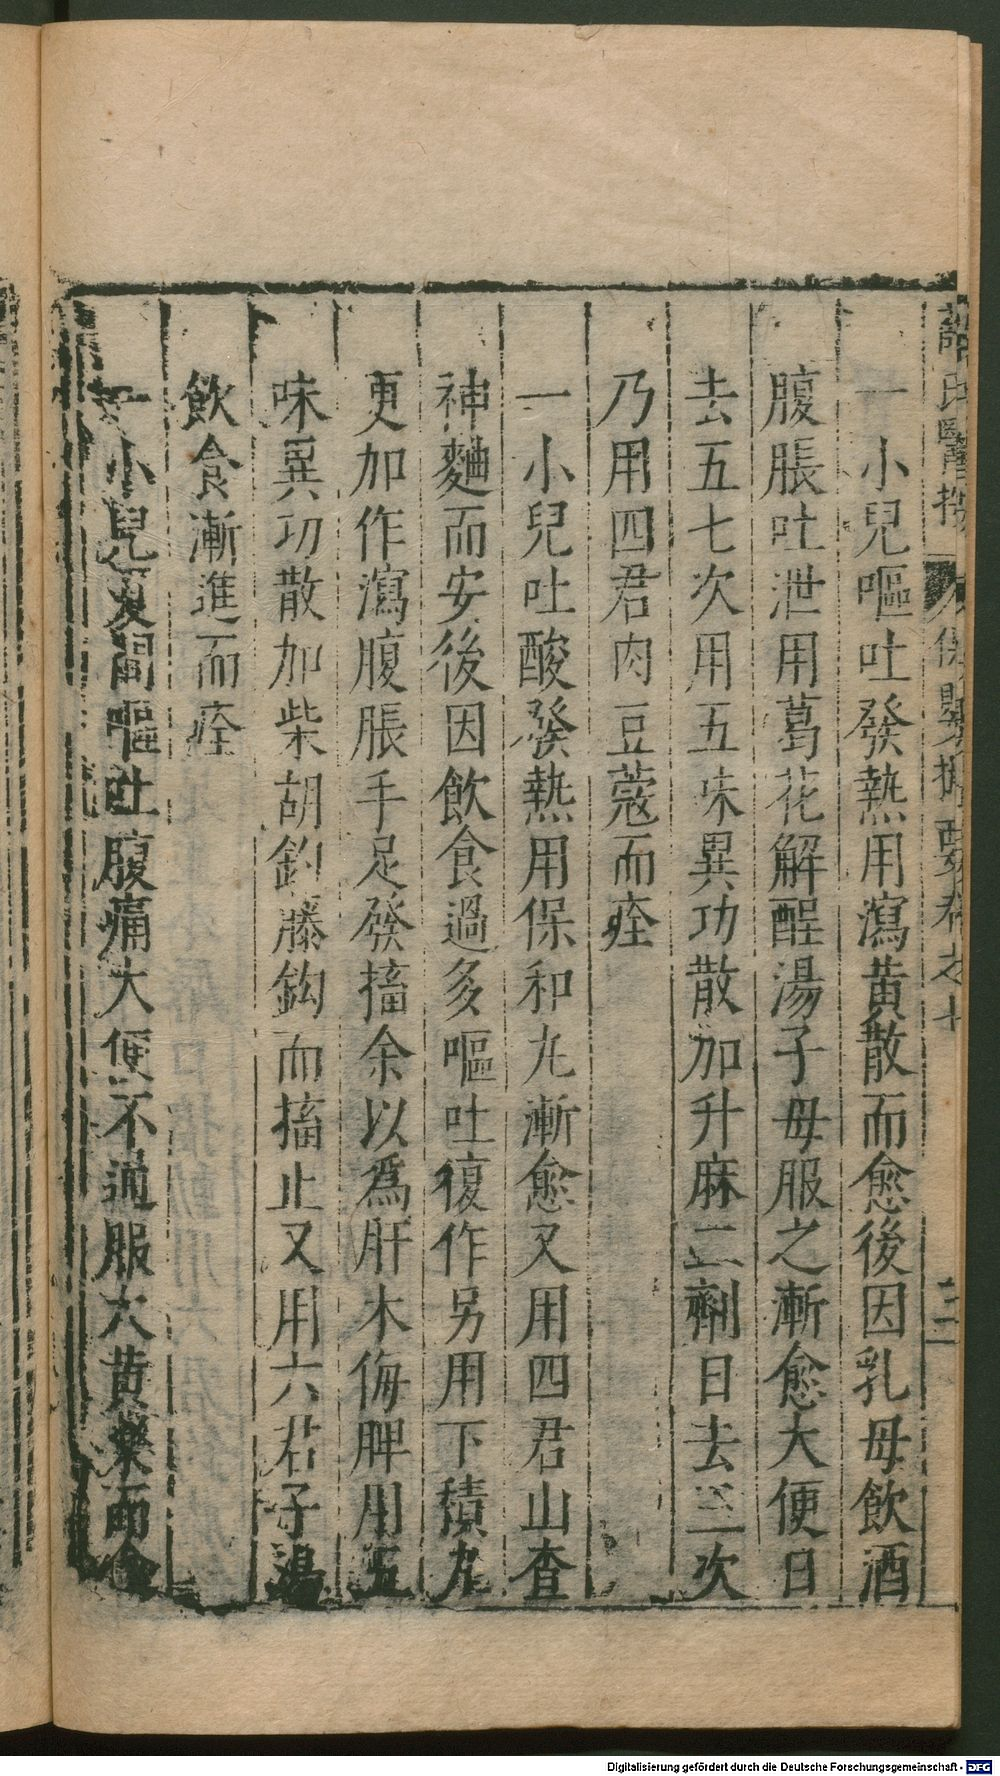 薛氏醫按 保嬰撮要卷之十
一小兒嘔吐發熱用瀉黃散而愈後因乳母飲酒
腹脹吐泄用葛花解醒湯子母服之漸愈大便日
去五七次用五味異功散加升麻二劑日去三次
乃用四君肉豆蔻而痊
一小兒吐酸發熱用保和丸漸愈又用四君山查
神麯而安後因飲食過多嘔吐復作另用下積丸
更加作瀉腹脹手足發搐余以爲肝木侮脾用五
味異功散加柴胡釣藤鈎而搐止又用六君子湯
飲食漸進而痊
一小兒夏間嘔吐腹痛大便不通服大黃藥而愈
Digitalisierung gefördert durch die Deutsche Forschungsgemeinschaft - DFG